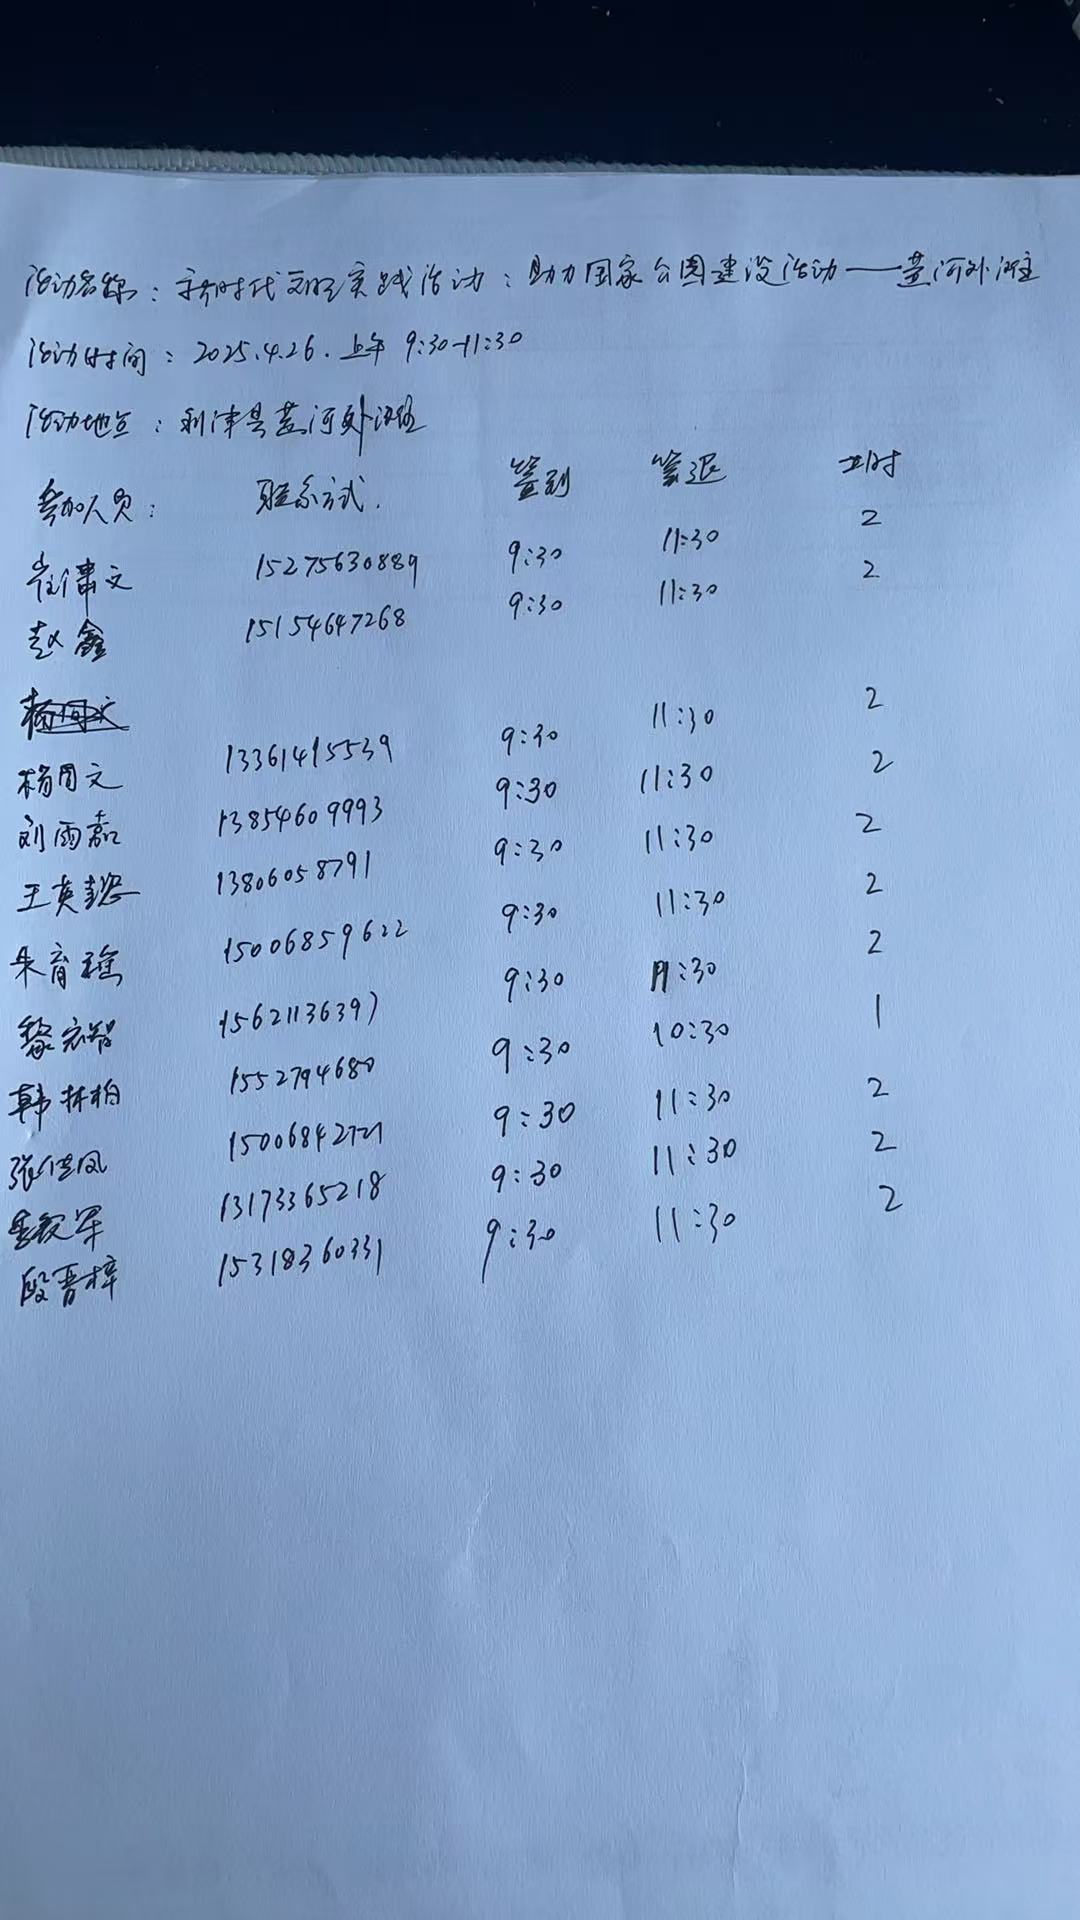 活动名称：新时代文明实践活动：助力国家公园建设活动——黄河外滩
活动时间：2025.4.26.上午 9:30-11:30
活动地点：利津县黄河外滩
参加人员： 联系方式. 签到 签退 工时
崔潇文 15275630889 9:30 11:30 2
赵鑫 15154647268 9:30 11:30 2
杨周文 13361415539 9:30 11:30 2
刘雨嘉 13854609993 9:30 11:30 2
王英懿 13806058791 9:30 11:30 2
朱育瑶 15006859622 9:30 11:30 2
黎宏智 15621136397 9:30 11:30 2
韩林柏 1552794680 9:30 10:30 1
张佳凤 15006842721 9:30 11:30 2
军 13173365218 9:30 11:30 2
段晋梓 15318360331 9:30 11:30 2